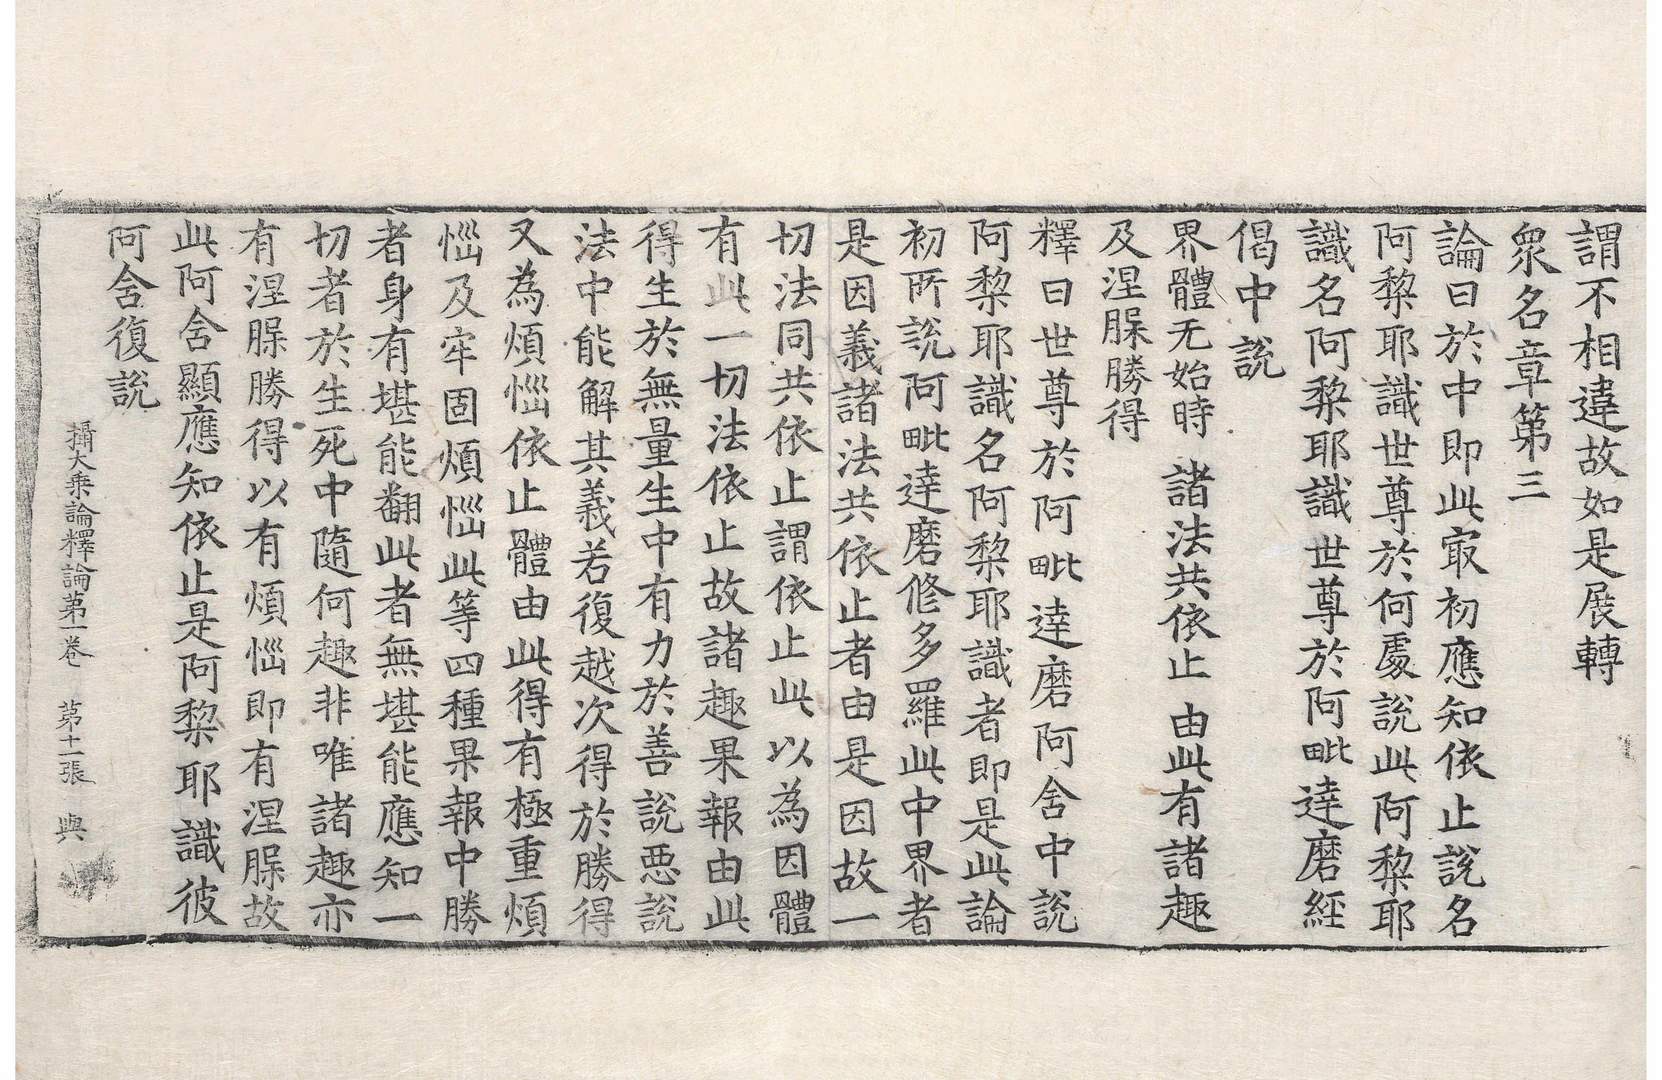 謂不相違故如是展轉
衆名章第三
論曰於中即此㝡初應知依止說名
阿黎耶識世尊於何處說此阿黎耶
識名阿黎耶識世尊於阿毗達磨經
偈中說
界體无始時 諸法共依止 由此有諸趣
及涅槃勝得
釋曰世尊於阿毗達磨阿含中說
阿黎耶識名阿黎耶識者即是此論
初所說阿毗達磨修多羅此中界者
是因義諸法共依止者由是因故一
切法同共依止謂依止此以為因體
有此一切法依止故諸趣果報由此
得生於無量生中有力於善說惡說
法中能解其義若復越次得於勝得
又為煩惱依止體由此得有極重煩
惱及牢固煩惱此等四種果報中勝
者身有堪能翻此者無堪能應知一
切者於生死中隨何趣非唯諸趣亦
有涅槃勝得以有煩惱即有涅槃故
此阿含顯應知依止是阿黎耶識彼
阿含復說
攝大乘論釋論第一卷 第十一張 與